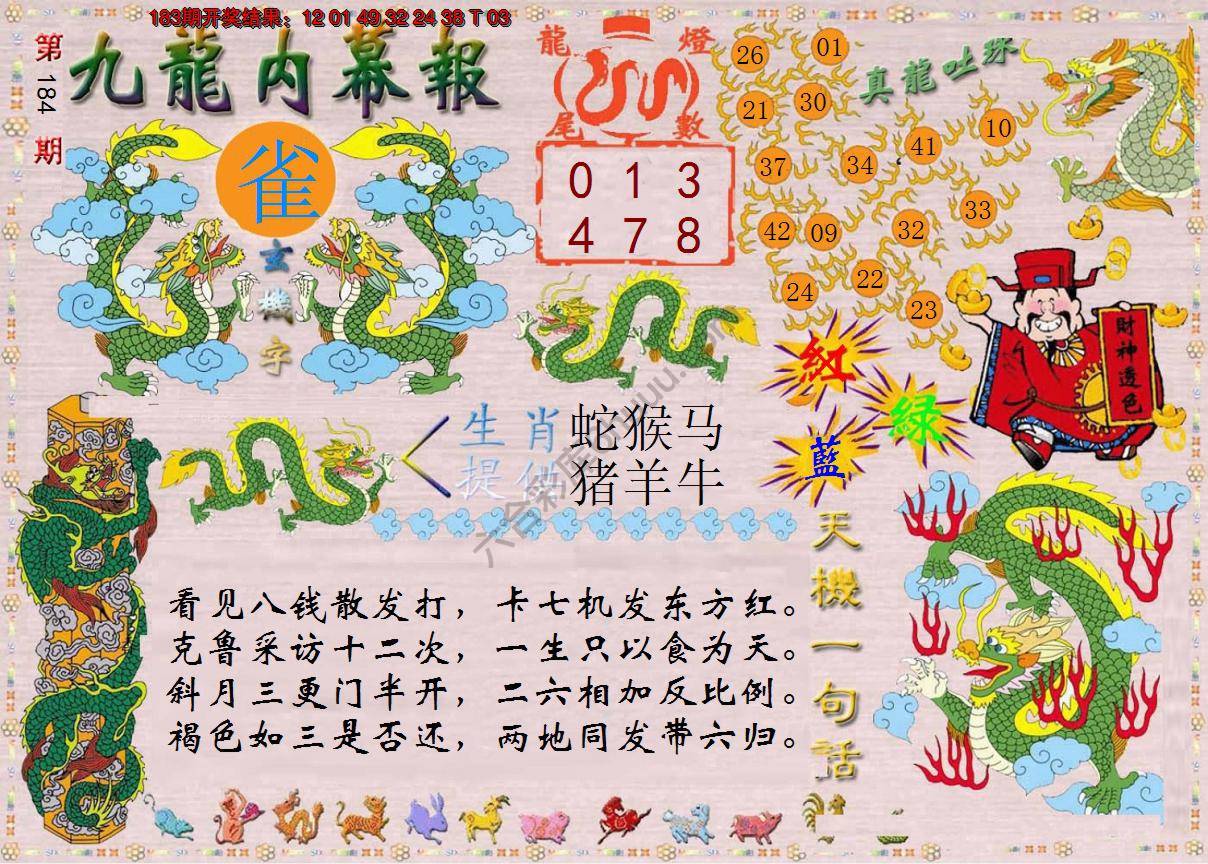 183期开奖结果：12 01 49 32 24 38 T 03
第184期
九龍内幕報
雀
玄機字
龍燈
尾數
0 1 3
4 7 8
真龍吐珠
26 01
21 30
37 34 41 10
42 09 32 33
24 22 23
財神透色
紅
綠
藍
生肖 蛇猴马
提供 猪羊牛
天機一句話
看见八钱散发打，卡七机发东方红。
克鲁采访十二次，一生只以食为天。
斜月三更门半开，二六相加反比例。
褐色如三是否还，两地同发带六归。